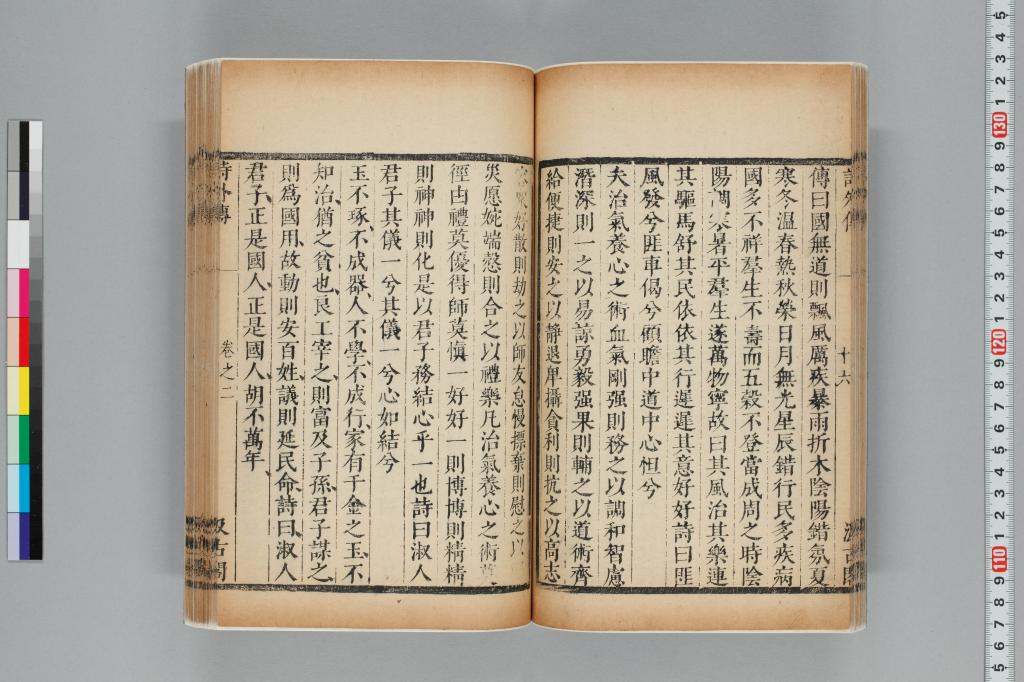 傳曰國無道則飄風厲疾暴雨折木陰陽錯氛夏
寒冬温春熱秋榮日月無光星辰錯行民多疾病
國多不祥羣生不壽而五穀不登當成周之時陰
陽調寒暑平羣生遂萬物寧故曰其風治其樂連
其驅馬舒其民依依其行遲遲其意好好詩曰匪
風發兮匪車偈兮顧瞻中道中心怛兮
夫治氣養心之術血氣剛强則務之以調和智慮
潛深則一之以易諒勇毅强果則輔之以道術齊
給便捷則安之以靜退卑攝貪利則抗之以高志
好散則劫之以師友怠慢摽棄則慰之以
災愿婉端慤則合之以禮樂凡治氣養心之術莫
徑由禮莫優得師莫愼一好好一則博博則精精
則神神則化是以君子務結心乎一也詩曰淑人
君子其儀一兮其儀一兮心如結兮
玉不琢不成器人不學不成行家有千金之玉不
知治猶之貧也良工宰之則富及子孫君子謀之
則爲國用故動則安百姓議則延民命詩曰淑人
君子正是國人正是國人胡不萬年
詩外傳
卷之二
汲古閣
十六